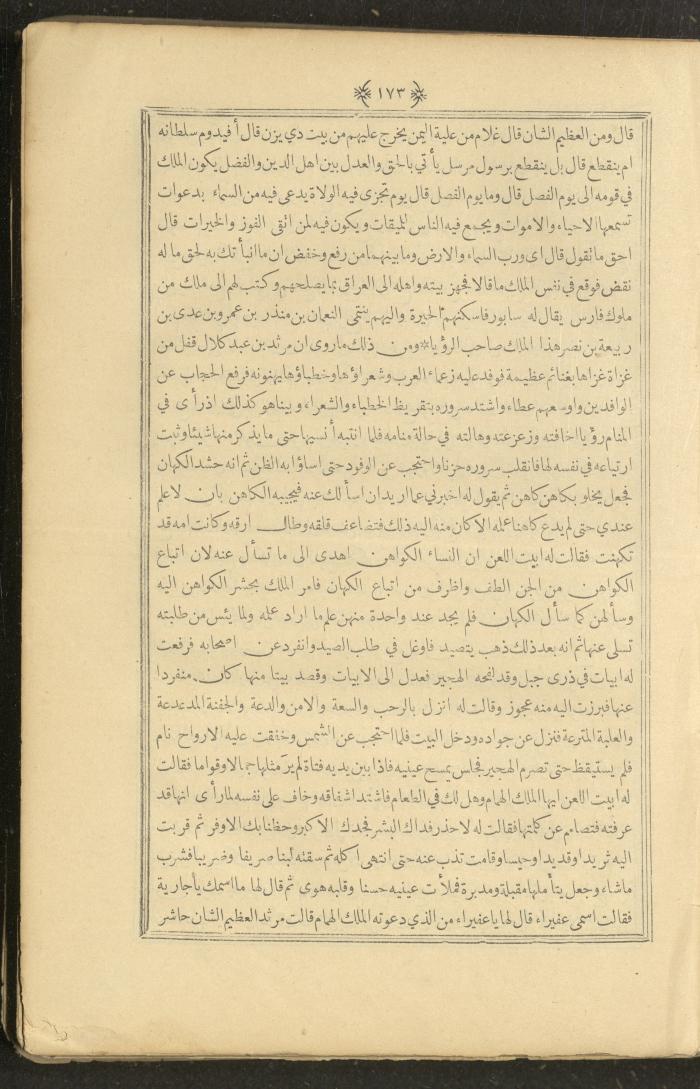 ١٧٣
قال ومن العظيم الشان قال غلام من علية اليمن يخرج عليهم من بيت دي يزن قال أفيدوم سلطانه
ام ينقطع قال بل ينقطع برسول مرسل يأتي بالحق والعدل بين اهل الدين والفضل يكون الملك
في قومه الى يوم الفصل قال وما يوم الفصل قال يوم تجزى فيه الولاة يدعى فيه من السماء بدعوات
تسمعها الاحياء والاموات ويجمع فيه الناس للميقات ويكون فيه لمن اتقى الفوز والخيرات قال
احق ما تقول قال اى ورب السماء والارض وما بينهما من رفع وخفض ان ما انبأتك به لحق ما له
نقض فوقع في نفس الملك ما قالا فجهز بيته واهله الى العراق بما يصلحهم وكتب لهم الى ملك من
ملوك فارس يقال له سابور فاسكنهم الحيرة واليهم ينتمى النعمان بن منذر بن عمرو بن عدى بن
ربيعة بن نصر هذا الملك صاحب الرؤيا * ومن ذلك ما روى ان مرثد بن عبد كلال قفل من
غزاة غزاها بغنائم عظيمة فوفد عليه زعماء العرب وشعراؤها وخطباؤها يهنونه فرفع الحجاب عن
الوافدين واوسعهم عطاء واشتد سروره بتقريظ الخطباء والشعراء وبينا هو كذلك اذ رأى في
المنام رؤيا اخافته وزعزعته وهالته في حالة منامه فلما انتبه أنسيها حتى ما يذكر منها شيئا وثبت
ارتياعه في نفسه لها فانقلب سروره حزنا واحتجب عن الوفود حتى اساؤا به الظن ثم انه حشد الكهان
فجعل يخلو بكاهن كاهن ثم يقول له اخبرني عما اريد ان اسألك عنه فيجيبه الكاهن بان لا علم
عندي حتى لم يدع كاهنا علمه الا كان منه اليه ذلك فتضاعف قلقه وطال ارقه وكانت امه قد
تكهنت فقالت له ابيت اللعن ان النساء الكواهن اهدى الى ما تسأل عنه لان اتباع
الكواهن من الجن الطف واظرف من اتباع الكهان فامر الملك بحشر الكواهن اليه
وسألهن كما سأل الكهان فلم يجد عند واحدة منهن علم ما اراد علمه ولما يئس من طلبته
تسلى عنها ثم انه بعد ذلك ذهب يتصيد فاوغل في طلب الصيد وانفرد عن اصحابه فرفعت
له ابيات في ذرى جبل وقد لفحه الهجير فعدل الى الابيات وقصد بيتا منها كان منفردا
عنها فبرزت اليه منه عجوز وقالت له انزل بالرحب والسعة والامن والدعة والجفنة المدعدعة
والعلبة المترعة فنزل عن جواده ودخل البيت فلما احتجب عن الشمس وخفقت عليه الارواح نام
فلم يستيقظ حتى تصرم الهجير فجلس يمسح عينيه فاذا بين يديه فتاة لم ير مثلها جمالا وقواما فقالت
له ابيت اللعن ايها الملك الهمام وهل لك في الطعام فاشتد اشفاقه وخاف على نفسه لما رأى انها قد
عرفته فتصامم عن كلمتها فقالت له لا حذر فداك البشر فجدك الاكبر وحظنا بك الاوفر ثم قربت
اليه ثريدا وقديدا وحيسا وقامت تذب عنه حتى انتهى اكله ثم سقته لبنا صريفا وضريبا فشرب
ما شاء وجعل يتأملها مقبلة ومدبرة فملأت عينيه حسنا وقلبه هوى ثم قال لها ما اسمك يا جارية
فقالت اسمى عفيراء قال لها يا عفيراء من الذي دعوته الملك الهمام قالت مرثد العظيم الشان حاشر